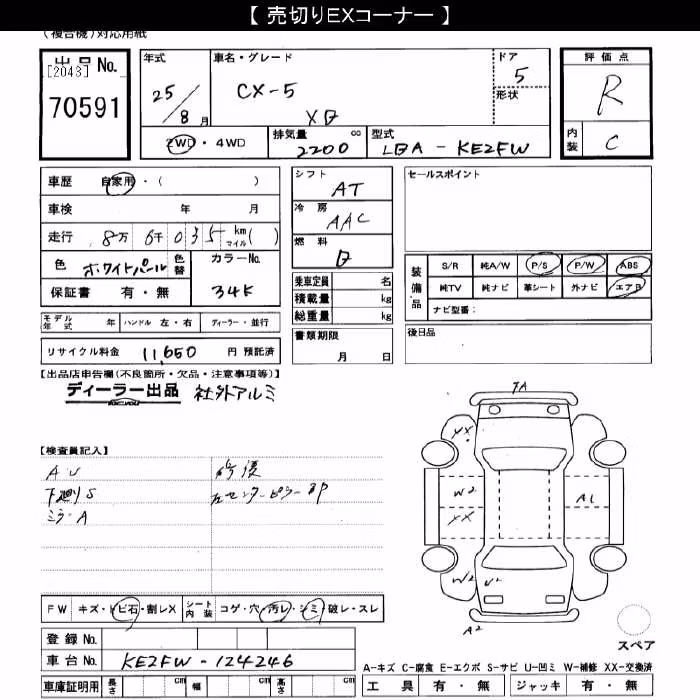 【 売切りEXコーナー 】
(複合機)対応用紙
出品 No.
[2043]
70591
年式
25/8月
車名・グレード
CX-5
XD
ドア
5
形状
評価点
R
内装
C
2WD・4WD
排気量
2200
cc
型式
LDA - KE2FW
車歴 自家用・( )
車検 年 月
走行 8万 6千 035 km マイル ( )
色 ホワイトパール
色替
カラーNo.
34K
保証書 有・無
シフト
AT
冷房
AAC
燃料
D
乗車定員 名
積載量 kg
総重量 kg
セールスポイント
装備品
S/R 純A/W P/S P/W ABS
純TV 純ナビ 革シート 外ナビ エアB
ナビ型番:
モデル年式 年 ハンドル 左・右 ディーラー・並行
書類期限
月 日
後日品
リサイクル料金 11,650 円 預託済
【出品店申告欄(不良箇所・欠品・注意事項等)】
ディーラー出品 社外アルミ
【検査員記入】
AU
下廻りS
ミラーA
修復
左センターピラーBP
TA
XX
W2
XX
A1
W2
U2
A2
FW キズ・トビ石・割レX
シート内装 コゲ・穴・汚レ・シミ・破レ・スレ
登録 No.
車台 No. KE2FW-124246
車庫証明用 長さ cm 幅 cm 高さ cm
スペア
A-キズ C-腐食 E-エクボ S-サビ U-凹ミ W-補修 XX-交換済
工具 有・無 ジャッキ 有・無